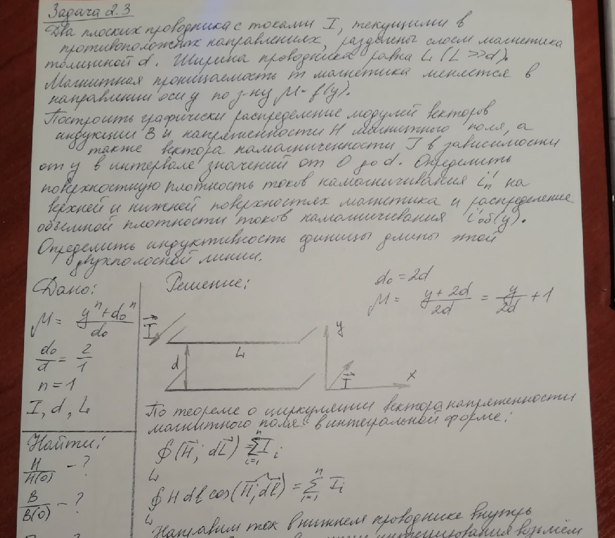 Задача 2.3
Два плоских проводника с токами I, текущими в
противоположных направлениях, разделены слоем магнетика
толщиной d. Ширина проводников равна L (L >> d).
Магнитная проницаемость m магнетика меняется в
направлении оси y по з-ну μ = f(y).
Построить графически распределение модулей векторов
индукции B и напряженности H магнитного поля, а
также вектора намагниченности J в зависимости
от y в интервале значений от 0 до d. Определить
поверхностную плотность токов намагничивания i'п на
верхней и нижней поверхностях магнетика и распределение
объемной плотности токов намагничивания i'об(y).
Определить индуктивность единицы длины этой
двухполосной линии.
Дано:
μ = (y^n + d₀^n)/d₀
d₀/d = 2/1
n = 1
I, d, L
Найти:
H/H(0) - ?
B/B(0) - ?
Решение:
d₀ = 2d
μ = (y + 2d)/2d = y/2d + 1
I
L
d
y
I
x
По теореме о циркуляции вектора напряженности
магнитного поля в интегральной форме:
∮ (H⃗; dL⃗) = Σ I i
n
i=1
L
∮ H dl cos(H⃗; dl⃗) = Σ Ii
n
i=1
L
Направим ток в нижнем проводнике внутрь